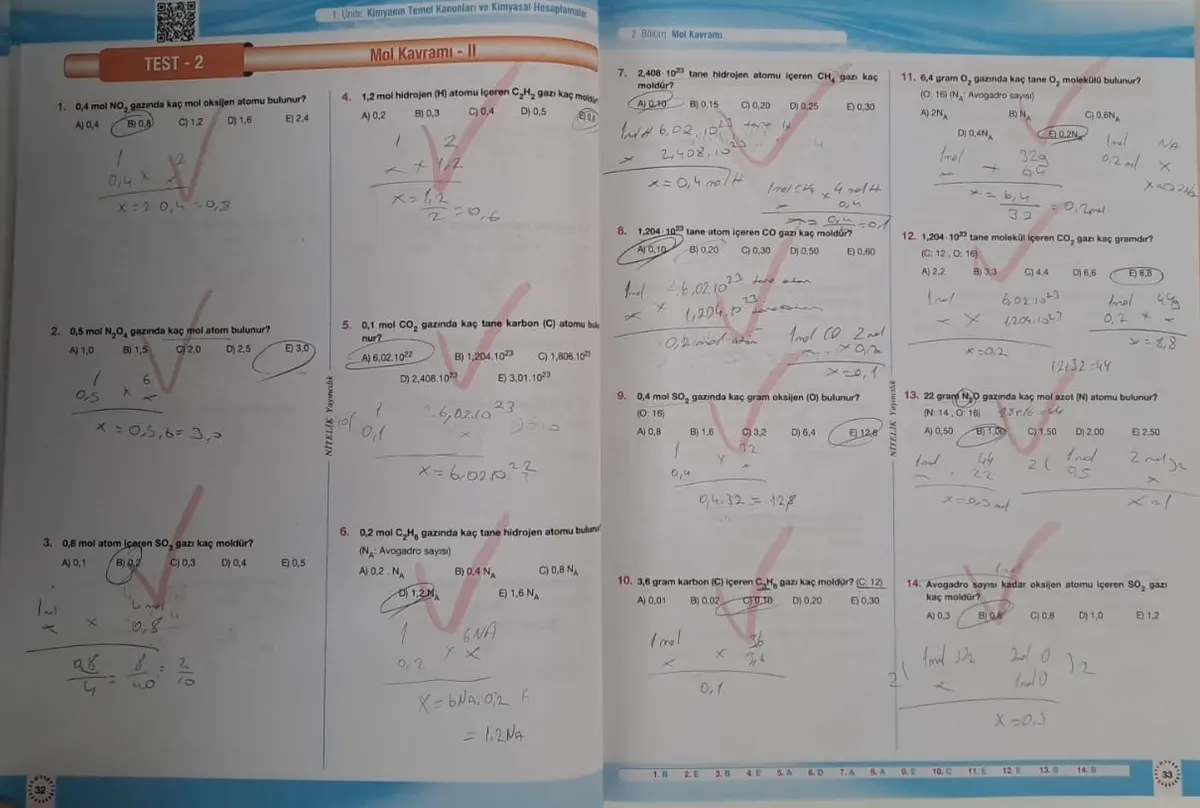 1. Ünite: Kimyanın Temel Kanunları ve Kimyasal Hesaplamalar
TEST - 2
Mol Kavramı - II
1. 0,4 mol NO₂ gazında kaç mol oksijen atomu bulunur?
A) 0,4 B) 0,8 C) 1,2 D) 1,6 E) 2,4
1 2
0,4 x
x = 2 0,4 = 0,8
2. 0,5 mol N₂O₄ gazında kaç mol atom bulunur?
A) 1,0 B) 1,5 C) 2,0 D) 2,5 E) 3,0
1 6
0,5 x
x = 0,5,6 = 3,0
3. 0,8 mol atom içeren SO₃ gazı kaç moldür?
A) 0,1 B) 0,2 C) 0,3 D) 0,4 E) 0,5
1mol 4 mol
x x 0,8
0,8/4 = 8/40 = 2/10
4. 1,2 mol hidrojen (H) atomu içeren C₂H₂ gazı kaç moldür
A) 0,2 B) 0,3 C) 0,4 D) 0,5
1 2
x x 1,2
x = 1,2/2 = 0,6
5. 0,1 mol CO₂ gazında kaç tane karbon (C) atomu bulu-
nur?
A) 6,02.10²² B) 1,204.10²³ C) 1,806.10²³
D) 2,408.10²³ E) 3,01.10²³
1 6,02.10²³
0,1 x
x = 6,02.10²²
6. 0,2 mol C₂H₆ gazında kaç tane hidrojen atomu bulunur
(N_A: Avogadro sayısı)
A) 0,2 . N_A B) 0,4 N_A C) 0,8 N_A
D) 1,2 N_A E) 1,6 N_A
1 6NA
0,2 x x
x = 6NA.0,2
= 1,2NA
NİTELİK Yayıncılık
32
2. Bölüm: Mol Kavramı
7. 2,408·10²³ tane hidrojen atomu içeren CH₄ gazı kaç
moldür?
A) 0,10 B) 0,15 C) 0,20 D) 0,25 E) 0,30
1mol H 6,02.10²³ tane H
x 2,408.10²³
x = 0,4 mol H
1mol CH₄ x 4 mol H
0,4
x = 0,4/4 = 0,1
8. 1,204·10²³ tane atom içeren CO gazı kaç moldür?
A) 0,10 B) 0,20 C) 0,30 D) 0,50 E) 0,60
1mol 6,02.10²³ tane atom
x x 1,204.10²³ tane atom
0,2 mol atom
1mol CO 2mol
x 0,2
x = 0,1
9. 0,4 mol SO₂ gazında kaç gram oksijen (O) bulunur?
(O: 16)
A) 0,8 B) 1,6 C) 3,2 D) 6,4 E) 12,8
1 32
0,4 x
0,4.32 = 12,8
10. 3,6 gram karbon (C) içeren C₃H₈ gazı kaç moldür? (C: 12)
A) 0,01 B) 0,02 C) 0,10 D) 0,20 E) 0,30
1mol 36
x x 3,6
0,1
NİTELİK Yayıncılık
11. 6,4 gram O₂ gazında kaç tane O₂ molekülü bulunur?
(O: 16) (N_A: Avogadro sayısı)
A) 2N_A B) N_A C) 0,6N_A
D) 0,4N_A E) 0,2N_A
1mol 32g
x 6,4
x = 6,4/32 = 0,2mol
1mol NA
0,2 mol x
12. 1,204·10²³ tane molekül içeren CO₂ gazı kaç gramdır?
(C: 12 , O: 16)
A) 2,2 B) 3,3 C) 4,4 D) 6,6 E) 8,8
1mol 6,02.10²³
x x 1,204.10²³
x = 0,2
1mol 44g
0,2 x x
x = 8,8
12+32=44
13. 22 gram N₂O gazında kaç mol azot (N) atomu bulunur?
(N: 14 , O: 16)
A) 0,50 B) 1,00 C) 1,50 D) 2,00 E) 2,50
1mol 44
22
x = 0,5 mol
1mol 2 mol
0,5 x
x = 1
14. Avogadro sayısı kadar oksijen atomu içeren SO₂ gazı
kaç moldür?
A) 0,3 B) 0,5 C) 0,8 D) 1,0 E) 1,2
1mol SO₂ 2mol O
x 1mol O
x = 0,5
1. B 2. E 3. B 4. E 5. A 6. D 7. A 8. A 9. E 10. C 11. E 12. E 13. B 14. B
33